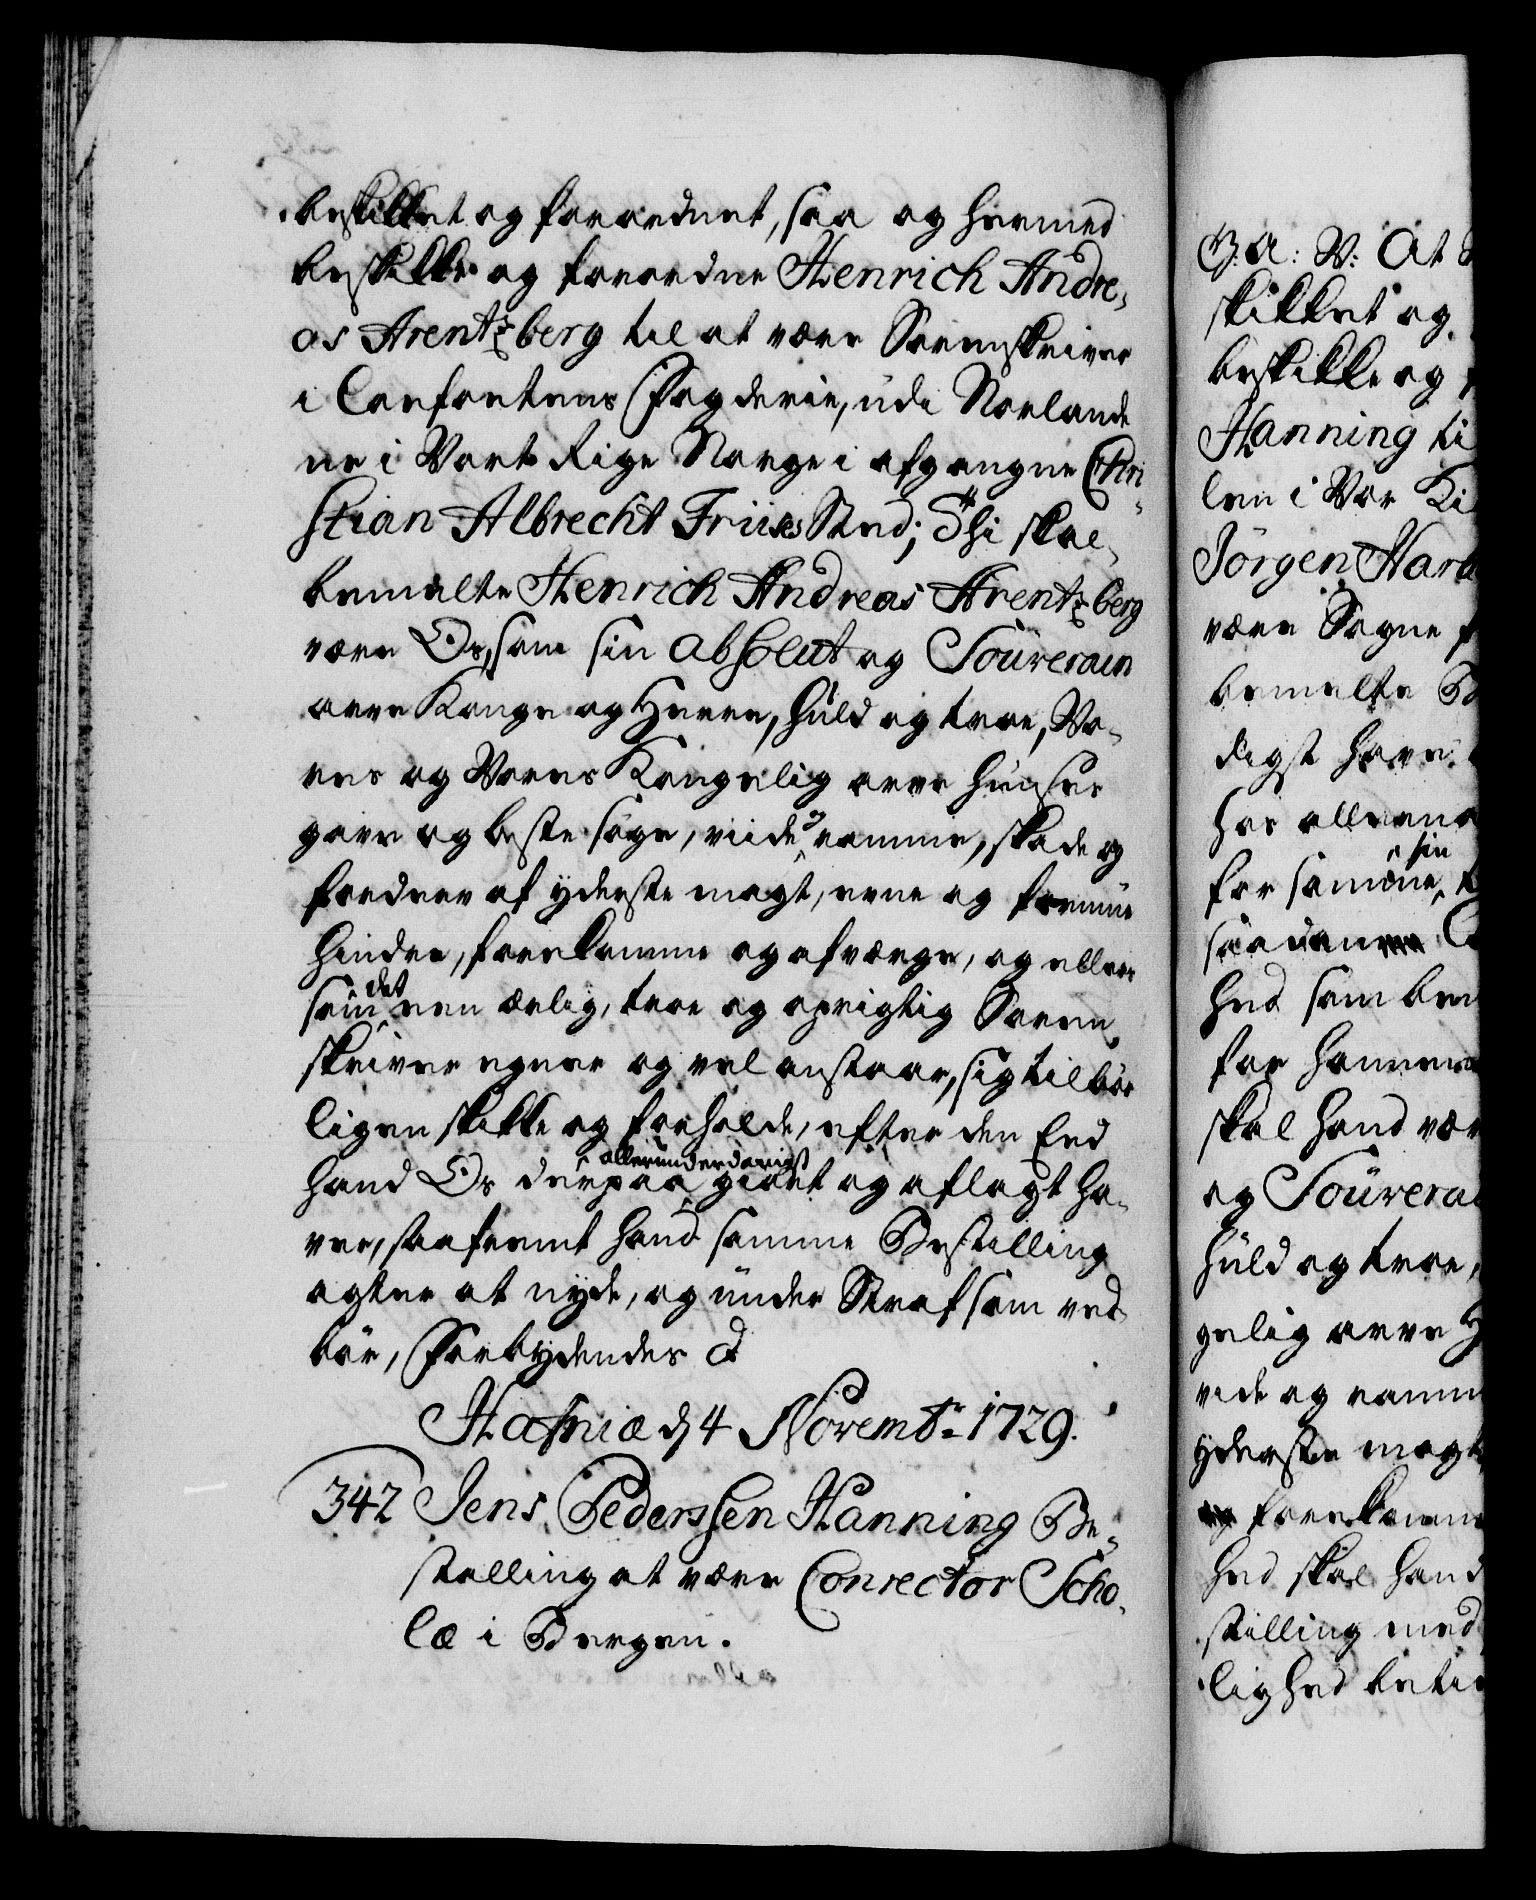 beskikket og forordnet, saa og hermed
beskikke og forordne Henrich Andre-
as Arentzberg til at være Sorenskriver
i Loefoetens Fogderie, udi Norlande
ne i Vort Rige Norge i afgangne Chri-
stian Albrecht Friises Sted; Thi skal
bemelte Henrich Andreas Arentzberg
være Os, som sin absolut og Souverain
arve Konge og Herre, huld og troe, Vo-
res og Vores Kongelig arve Huuses
gavn og beste søge, viide og ramme, skade og
fordærv af yderste magt, evne og formue
hindre, forekomme og afværge, og ellers
som det een ærlig, troe og oprigtig Soren
skriver egner og vel anstaar, sig tilbør
ligen skikke og forholde, efter den Eed
hand Os derpaa allerunderdanigst giort og aflagt ha-
ver, saafremt hand samme Bestilling
agter at nyde, og under Straf som ved
bør, Forbydendes &
Hafniæ d 4 Novembr 1729.
342 Jens Pederssen Hanning Be-
stilling at være Conrector Scho-
læ i Bergen.
G: A: V: At
skikket og
beskikke og
Hanning ti
len i Vor Ki
Jörgen Hard
være Sogne
bemelte
digst have
hos allerna
for samme sin
saadanne
hed som bem
for hannem
skal hand vær
og Souverai
huld og troe,
gelig arve H
vide og ramm
yderste magt
forekomm
hed skal hand
stilling med
lighed beti